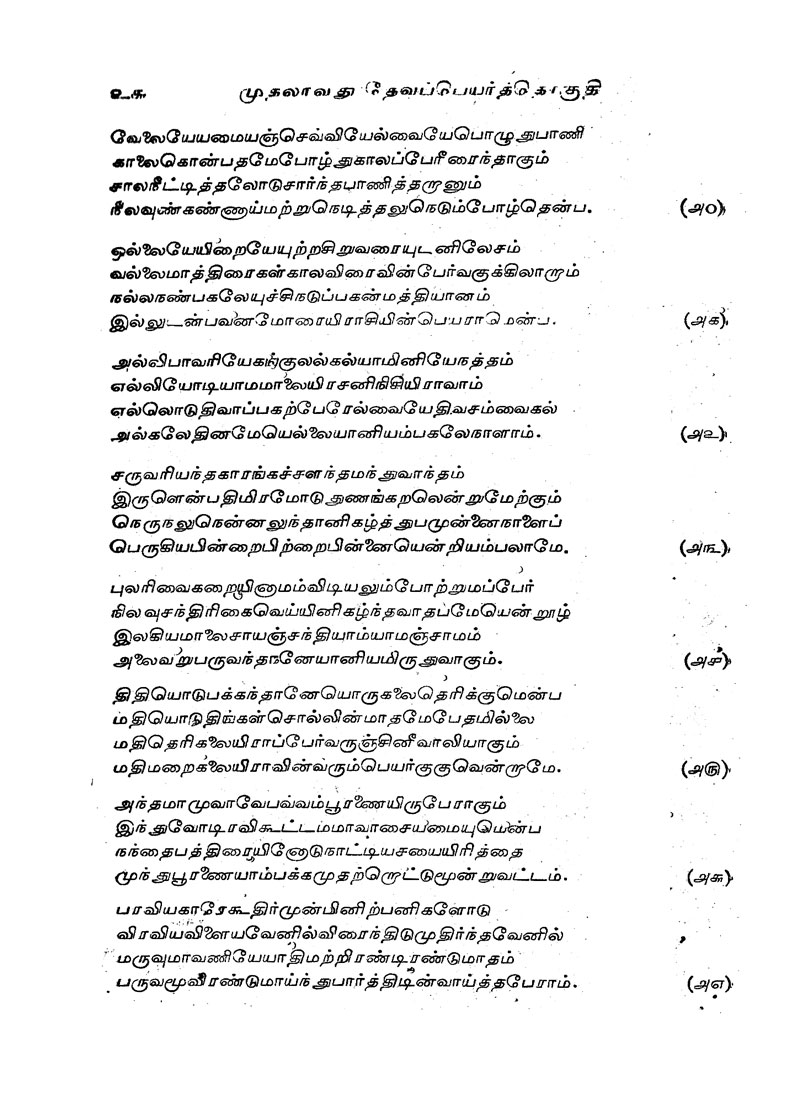 உசு முதலாவது தேவப்பெயர்த்தொகுதி
வேலையேயமையஞ்செவ்வியேல்வையேபொழுதுபாணி
காலைகொன்பதமேபோழ்துகாலப்பேரீரைந்தாகும்
சாலநீட்டித்தலோடுசார்ந்தபாணித்தறானும்
நீலவுண்கண்ணாய்மற்றுநெடித்தலுநெடும்போழ்தென்ப. (அ௦)
ஒல்லையேயிறையேயுற்றசிறுவரையுடனிலேசம்
வல்லைமாத்திரைகள்காலவிரைவின்பேர்வகுக்கிலாறாம்
நல்லநண்பகலேயுச்சிநடுப்பகன்மத்தியானம்
இல்லுடன்பவனமோரையிராசியின்பெயராமென்ப. (அக)
அல்விபாவரியேகங்குலல்கல்யாமினியேநத்தம்
எல்லியோடியாமமாலையிரசனிநிசியிராவாம்
எல்லொடுதிவாப்பகற்பேரேல்வையேதிவசம்வைகல்
அல்கலேதினமேயெல்லையானியம்பகலேநாளாம். (அஉ)
சருவரியந்தகாரங்கச்சளந்தமந்துவாந்தம்
இருளென்பதிமிரமோடுதுணங்கறலென்றுமேற்கும்
நெருநலுநென்னலுந்தானிகழ்த்துபமுன்னைநாளைப்
பெருகியபின்றைபிற்றைபின்னையென்றியம்பலாமே. (அ௩)
புலரிவைகறையினாமம்விடியலும்போற்றுமப்பேர்
நிலவுசந்திரிகைவெய்யினிகழ்ந்தவாதபமேயென்றூழ்
இலகியமாலைசாயஞ்சந்தியாம்யாமஞ்சாமம்
அலைவறுபருவந்தானேயானியமிருதுவாகும். (அ௪)
திதியொடுபக்கந்தானேயொருகலைதெரிக்குமென்ப
மதியொடுதிங்கள்சொல்லின்மாதமேபேதமில்லை
மதிதெரிகலையிராப்பேர்வருஞ்சினீவாலியாகும்
மதிமறைகலையிராவின்வரும்பெயர்குகுவென்றாமே. (அ௫)
அந்தமாமுவாவேபவ்வம்பூரணையிருபேராகும்
இந்துவோடிரவிகூட்டமமாவாசையமையுமென்ப
நந்தைபத்திரையினோடுநாட்டியசயையிரித்தை
முந்துபூரணையாம்பக்கமுதற்றொட்டுமூன்றுவட்டம். (அசு)
பரவியகாரேகூதிர்முன்பினிற்பனிகளோடு
விரவியவிளையவேனில்விரைந்திடுமுதிர்ந்தவேனில்
மருவுமாவணியேயாதிமற்றிரண்டிரண்டுமாதம்
பருவமூவிரண்டுமாய்ந்துபார்த்திடின்வாய்த்தபேராம். (அஎ)